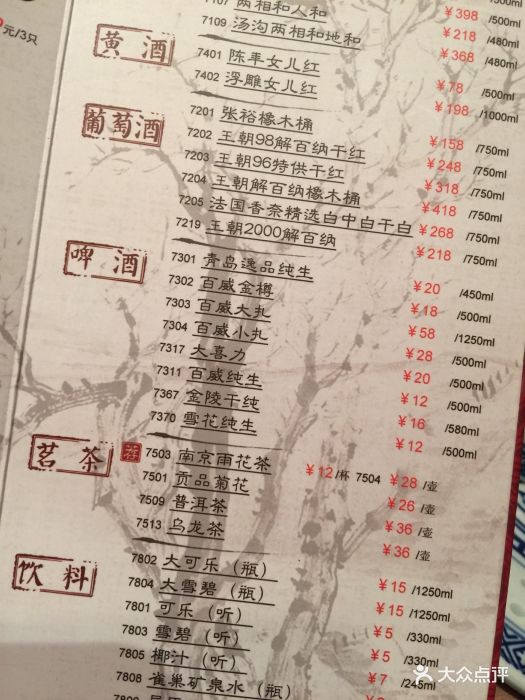 元/3只
/500ml
¥398 /500ml
7107 两相和人和 ¥218 /480ml
7109 汤沟两相和地和 ¥368 /480ml
黄酒
7401 陈年女儿红 ¥78 /500ml
7402 浮雕女儿红 ¥198 /1000ml
葡萄酒
7201 张裕橡木桶 ¥158 /750ml
7202 王朝98解百纳干红 ¥248 /750ml
7203 王朝96特供干红 ¥318 /750ml
7204 王朝解百纳橡木桶 ¥418 /750ml
7205 法国香奈精选白中白干白 ¥268 /750ml
7219 王朝2000解百纳 ¥218 /750ml
啤酒
7301 青岛逸品纯生 ¥20 /450ml
7302 百威金樽 ¥18 /500ml
7303 百威大扎 ¥58 /1250ml
7304 百威小扎 ¥28 /500ml
7317 大喜力 ¥20 /500ml
7311 百威纯生 ¥12 /500ml
7367 金陵干纯 ¥16 /580ml
7370 雪花纯生 ¥12 /500ml
茗茶
荐 7503 南京雨花茶 ¥12 /杯 7504 ¥28 /壶
7501 贡品菊花 ¥26 /壶
7509 普洱茶 ¥36 /壶
7513 乌龙茶 ¥36 /壶
饮料
7802 大可乐（瓶） ¥15 /1250ml
7804 大雪碧（瓶） ¥15 /1250ml
7801 可乐（听） ¥5 /330ml
7803 雪碧（听） ¥5 /330ml
7805 椰汁（听） ¥7 /245ml
7808 雀巢矿泉水（瓶）
大众点评